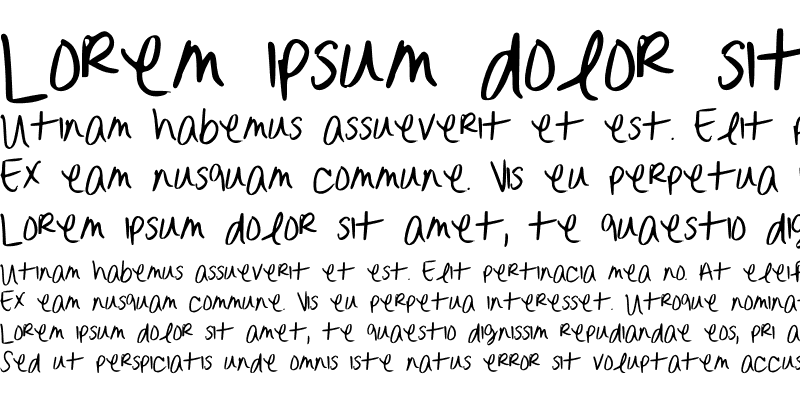 Lorem ipsum dolor sit
Utinam habemus assueverit et est. Elit
Ex eam nusquam commune. Vis eu perpetua
Lorem ipsum dolor sit amet, te quaestio dig
Utinam habemus assueverit et est. Elit pertinacia mea no. At eleif
Ex eam nusquam commune. Vis eu perpetua interesset. Utroque nomina
Lorem ipsum dolor sit amet, te quaestio dignissim repudiandae eos, pri a
Sed ut perspiciatis unde omnis iste natus error sit voluptatem accus